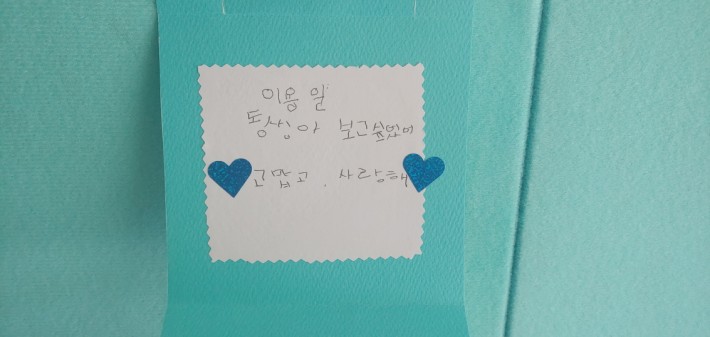 이용일
동싱아 보고싶었어
고맙고. 사랑해